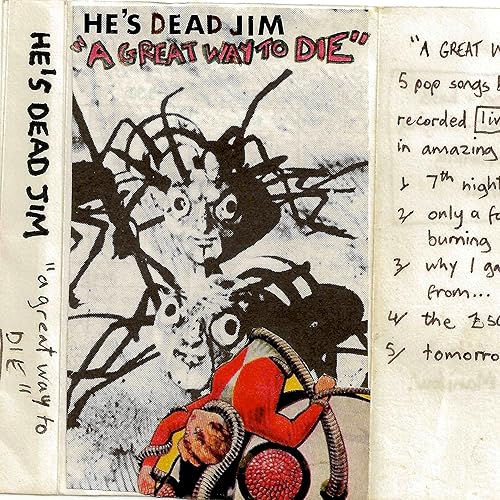 HE'S DEAD JIM "a great way to
DIE"
HE'S DEAD JIM
"A GREAT WAY TO DIE"
"A GREAT W
5 pop songs
recorded live
in amazing
1/ 7th night
2/ only a fa
burning
3/ why I ga
from...
4/ the
5/ tomorro